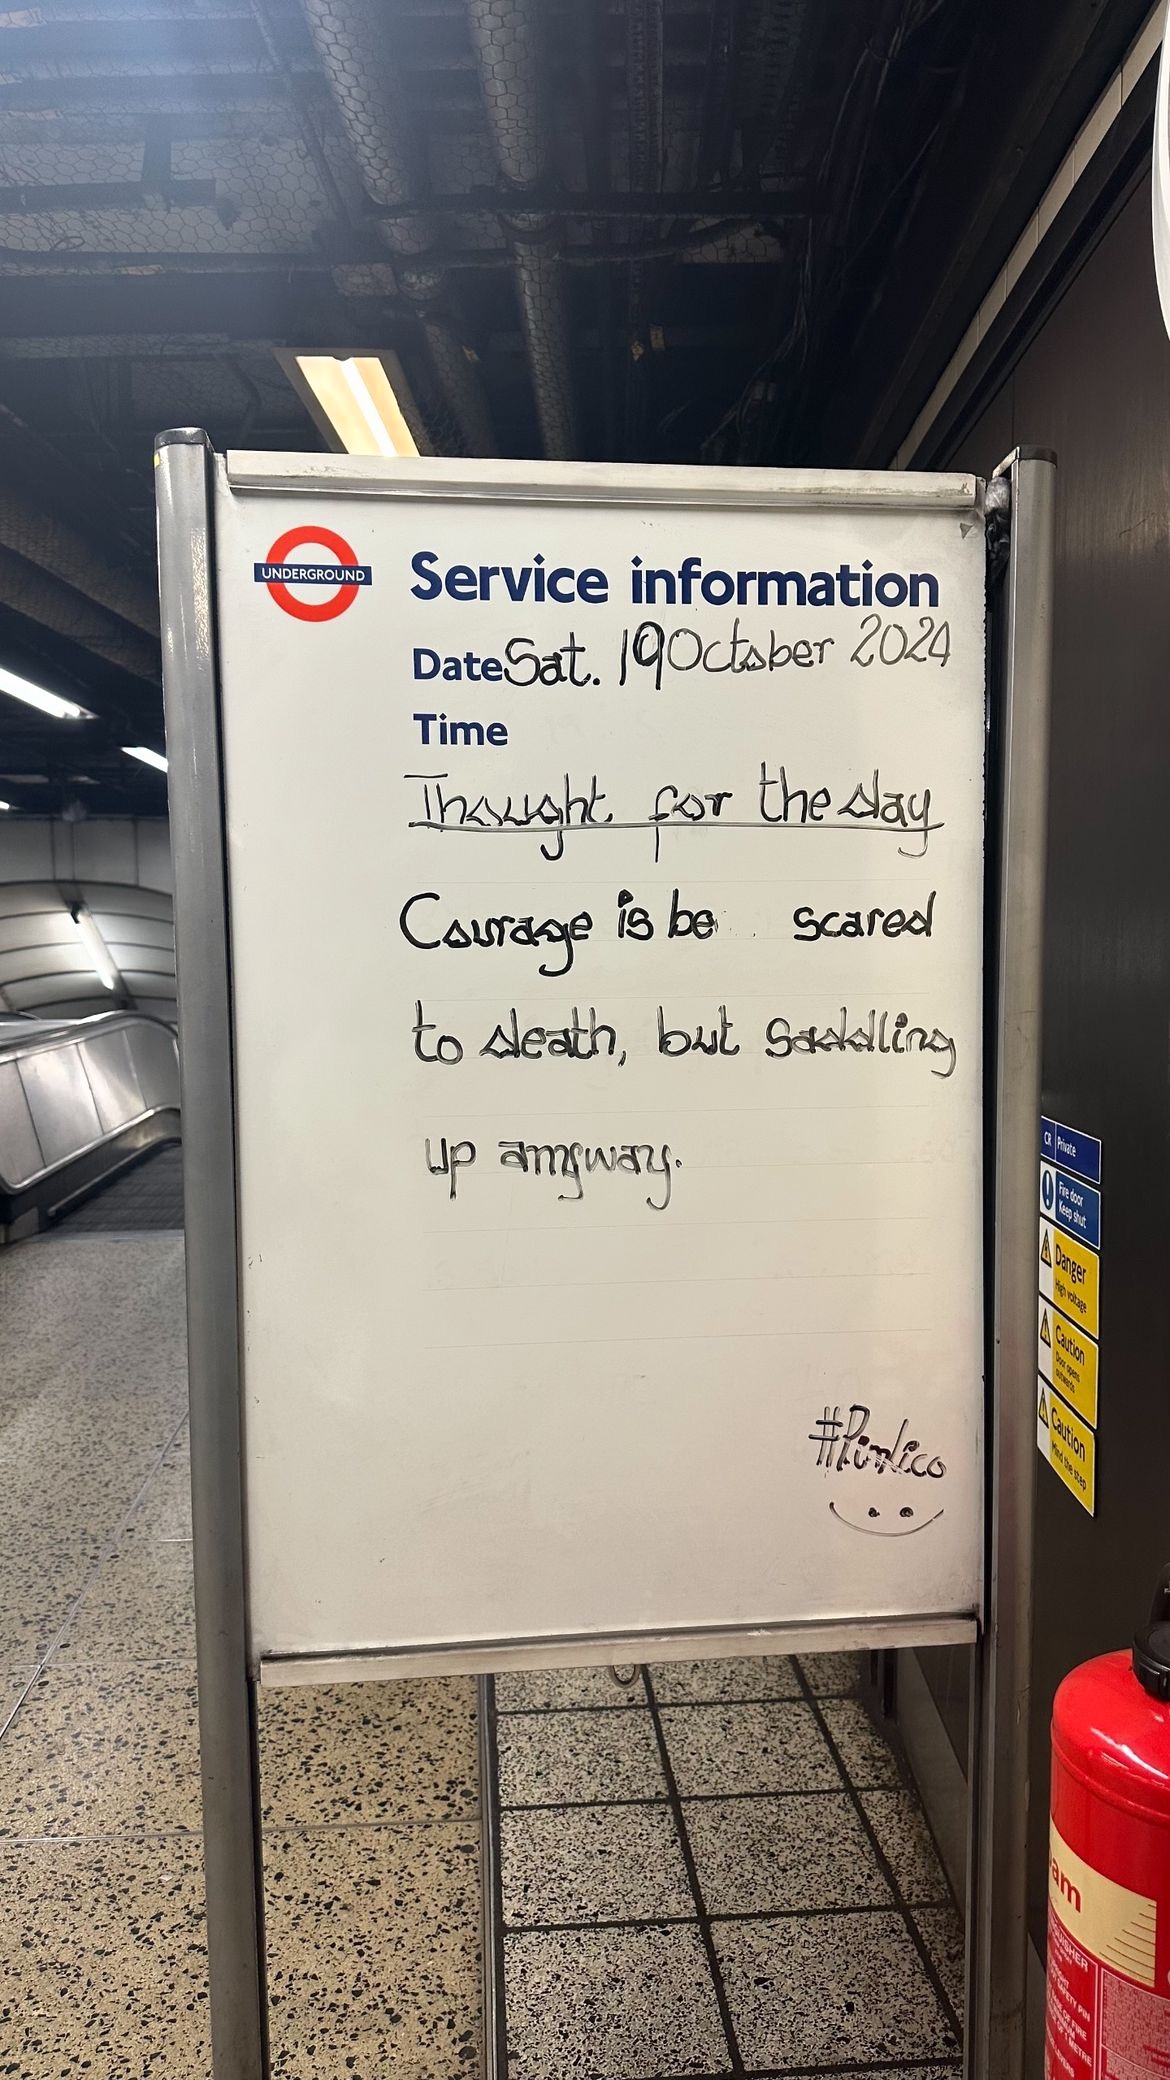 UNDERGROUND
Service information
Date Sat. 19 October 2024
Time
Thought for the day
Courage is be scared
to death, but saddling
up anyway.
#Pimlico
CR Private
Fire door
Keep shut
Danger
High voltage
Caution
Door opens
outwards
Caution
Mind the step